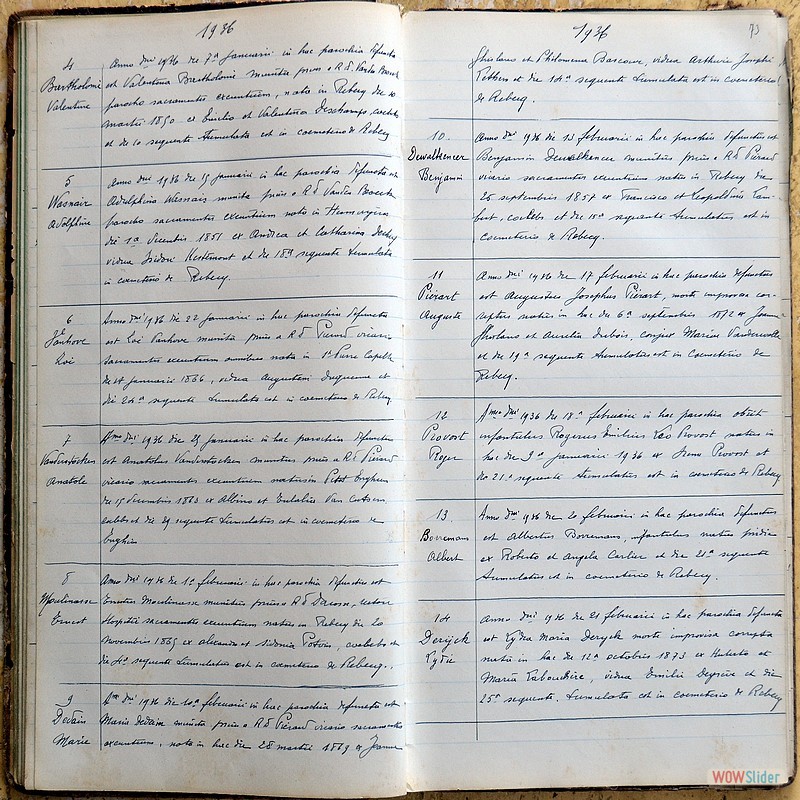 1936
4
Bartholomé
Valentine
Anno dni 1936 die 7ª Januarii in hac parochia defuncta
est Valentina Bartholomé munita prius a R. D. Vanden Broeck
parocho sacramentis exeuntium, nata in Rebecq die 10
martii 1850 ex Emilio et Valentina Deschamps, coelebs
et die 10 sequente tumulata est in coemeterio de Rebecq
5
Wasnair
Adolphine
Anno dni 1936 die 15 Januarii in hac parochia defuncta est
Adolphina Wasnair munita prius a R D Vanden Broeck
parocho sacramentis exeuntium nata in
die 1ª Decembris 1851 ex Andrea et Catharina
vidua Isidori Kestemont et die 18ª sequente tumulata
in coemeterio de Rebecq.
6
Vanhove
Loï
Anno dni 1936 die 22 Januarii in hac parochia defuncta
est Loï Vanhove munita prius a R D Piérard vicario
sacramentis exeuntium omnibus nata in St Pierre Capelle
die 14 Januarii 1866, vidua Augustini Duquenne et
die 24ª sequente tumulata est in coemeterio de Rebecq
7
Vanderstocken
Anatole
Anno dni 1936 die 25 Januarii in hac parochia defunctus
est Anatolus Vanderstocken munitus prius a R D Piérard
vicario sacramentis exeuntium natus in Petit Enghien
die 15 decembris 1863 ex Albino et Eulalia Van Cutsem
coelebs et die 29 sequente tumulatus est in coemeterio de
Enghien
8
Moulinasse
Ernest
Anno dni 1936 die 1ª februarii in hac parochia defunctus est
Ernestus Moulinasse munitus prius a R D Derosse, rectore
Hospitii sacramentis exeuntium natus in Rebecq die 20
Novembris 1865 ex Alexandro et Sidonia Potvin, coelebs et
die 4ª sequente tumulatus est in coemeterio de Rebecq.
9
Dedain
Marie
Anno dni 1936 die 10ª februarii in hac parochia defuncta est
Maria Dedain munita prius a R D Piérard vicario sacramentis
exeuntium, nata in hac die 28 martii 1869 ex Joanne
1936
73
Ghislano et Philomena Bascour, vidua Arthurii Josephi
Robbers et die 14ª sequente tumulata est in coemeterio
de Rebecq.
10
Dewalhencer
Benjamin
Anno dni 1936 die 13 februarii in hac parochia defunctus est
Benjamin Dewalhencer munitus prius a R D Piérard
vicario sacramentis exeuntium natus in Rebecq die
26 septembris 1857 ex Francisco et Leopoldina Lam-
bert, coelebs et die 15ª sequente tumulatus est in
coemeterio de Rebecq.
11
Piérart
Auguste
Anno dni 1936 die 17 februarii in hac parochia defunctus
est Augustus Josephus Piérart, morte improvisa cor-
reptus natus in hac die 6ª septembris 1872 ex Joanne
Ghislano et Aurelia Dubois, conjux Mariae
et die 19ª sequente tumulatus est in coemeterio de
Rebecq.
12
Provost
Roger
Anno dni 1936 die 18ª februarii in hac parochia obiit
infantulus Rogerus Emilius Léo Provost natus in
hac die 9ª januarii 1936 ex Irene Provost et
die 21ª sequente tumulatus est in coemeterio de Rebecq
13
Borremans
Albert
Anno dni 1936 die 20 februarii in hac parochia defunctus
est Albertus Borremans, infantulus natus pridie
ex Roberto et Angela Carlier et die 21ª sequente
tumulatus est in coemeterio de Rebecq.
14
Deryck
Lydie
Anno dni 1936 die 21 februarii in hac parochia defuncta
est Lydia Maria Deryck morte improvisa correpta
nata in hac die 12ª octobris 1873 ex Huberto et
Maria Labouchère, vidua Emilii et die
25ª sequente tumulata est in coemeterio de Rebecq
WOWSlider